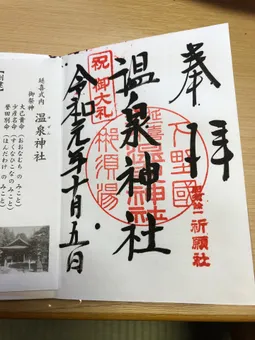 奉拝
下野國
延喜式内
温泉神社
那須湯
祈願社
温泉神社
祝 御大礼
令和元年十月五日
延喜式内
温泉神社
御祭神
大己貴命(おおなむちのみこと)
少彦名命(すくなひこなのみこと)
誉田別命(ほんだわけのみこと)